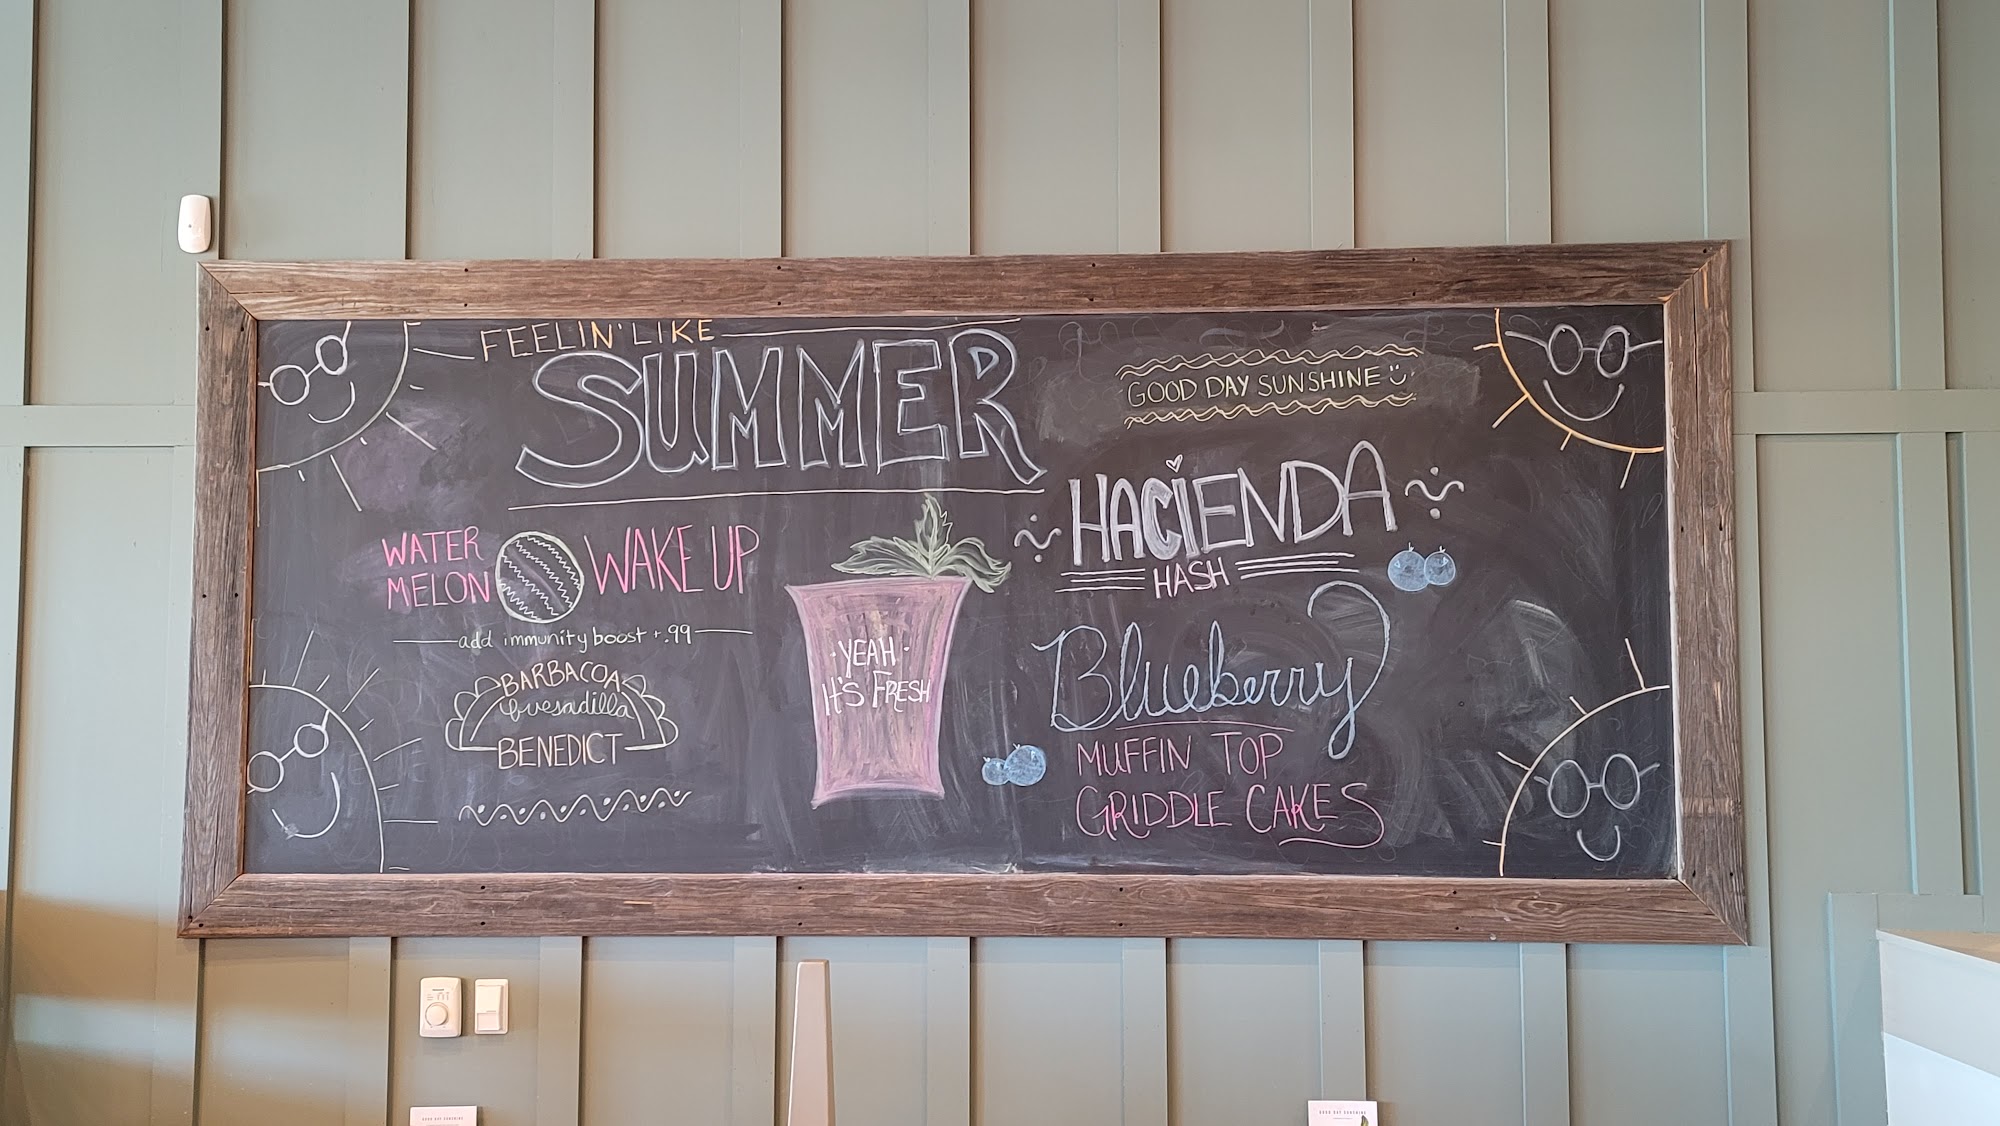 FEELIN' LIKE
SUMMER
WATER
MELON
WAKE UP
add immunity boost +.99
BARBACOA
quesadilla
BENEDICT
·YEAH·
It'S FRESH
GOOD DAY SUNSHINE
HACIENDA
HASH
Blueberry
MUFFIN TOP
GRIDDLE CAKES
GOOD DAY SUNSHINE
GOOD DAY SUNSHINE